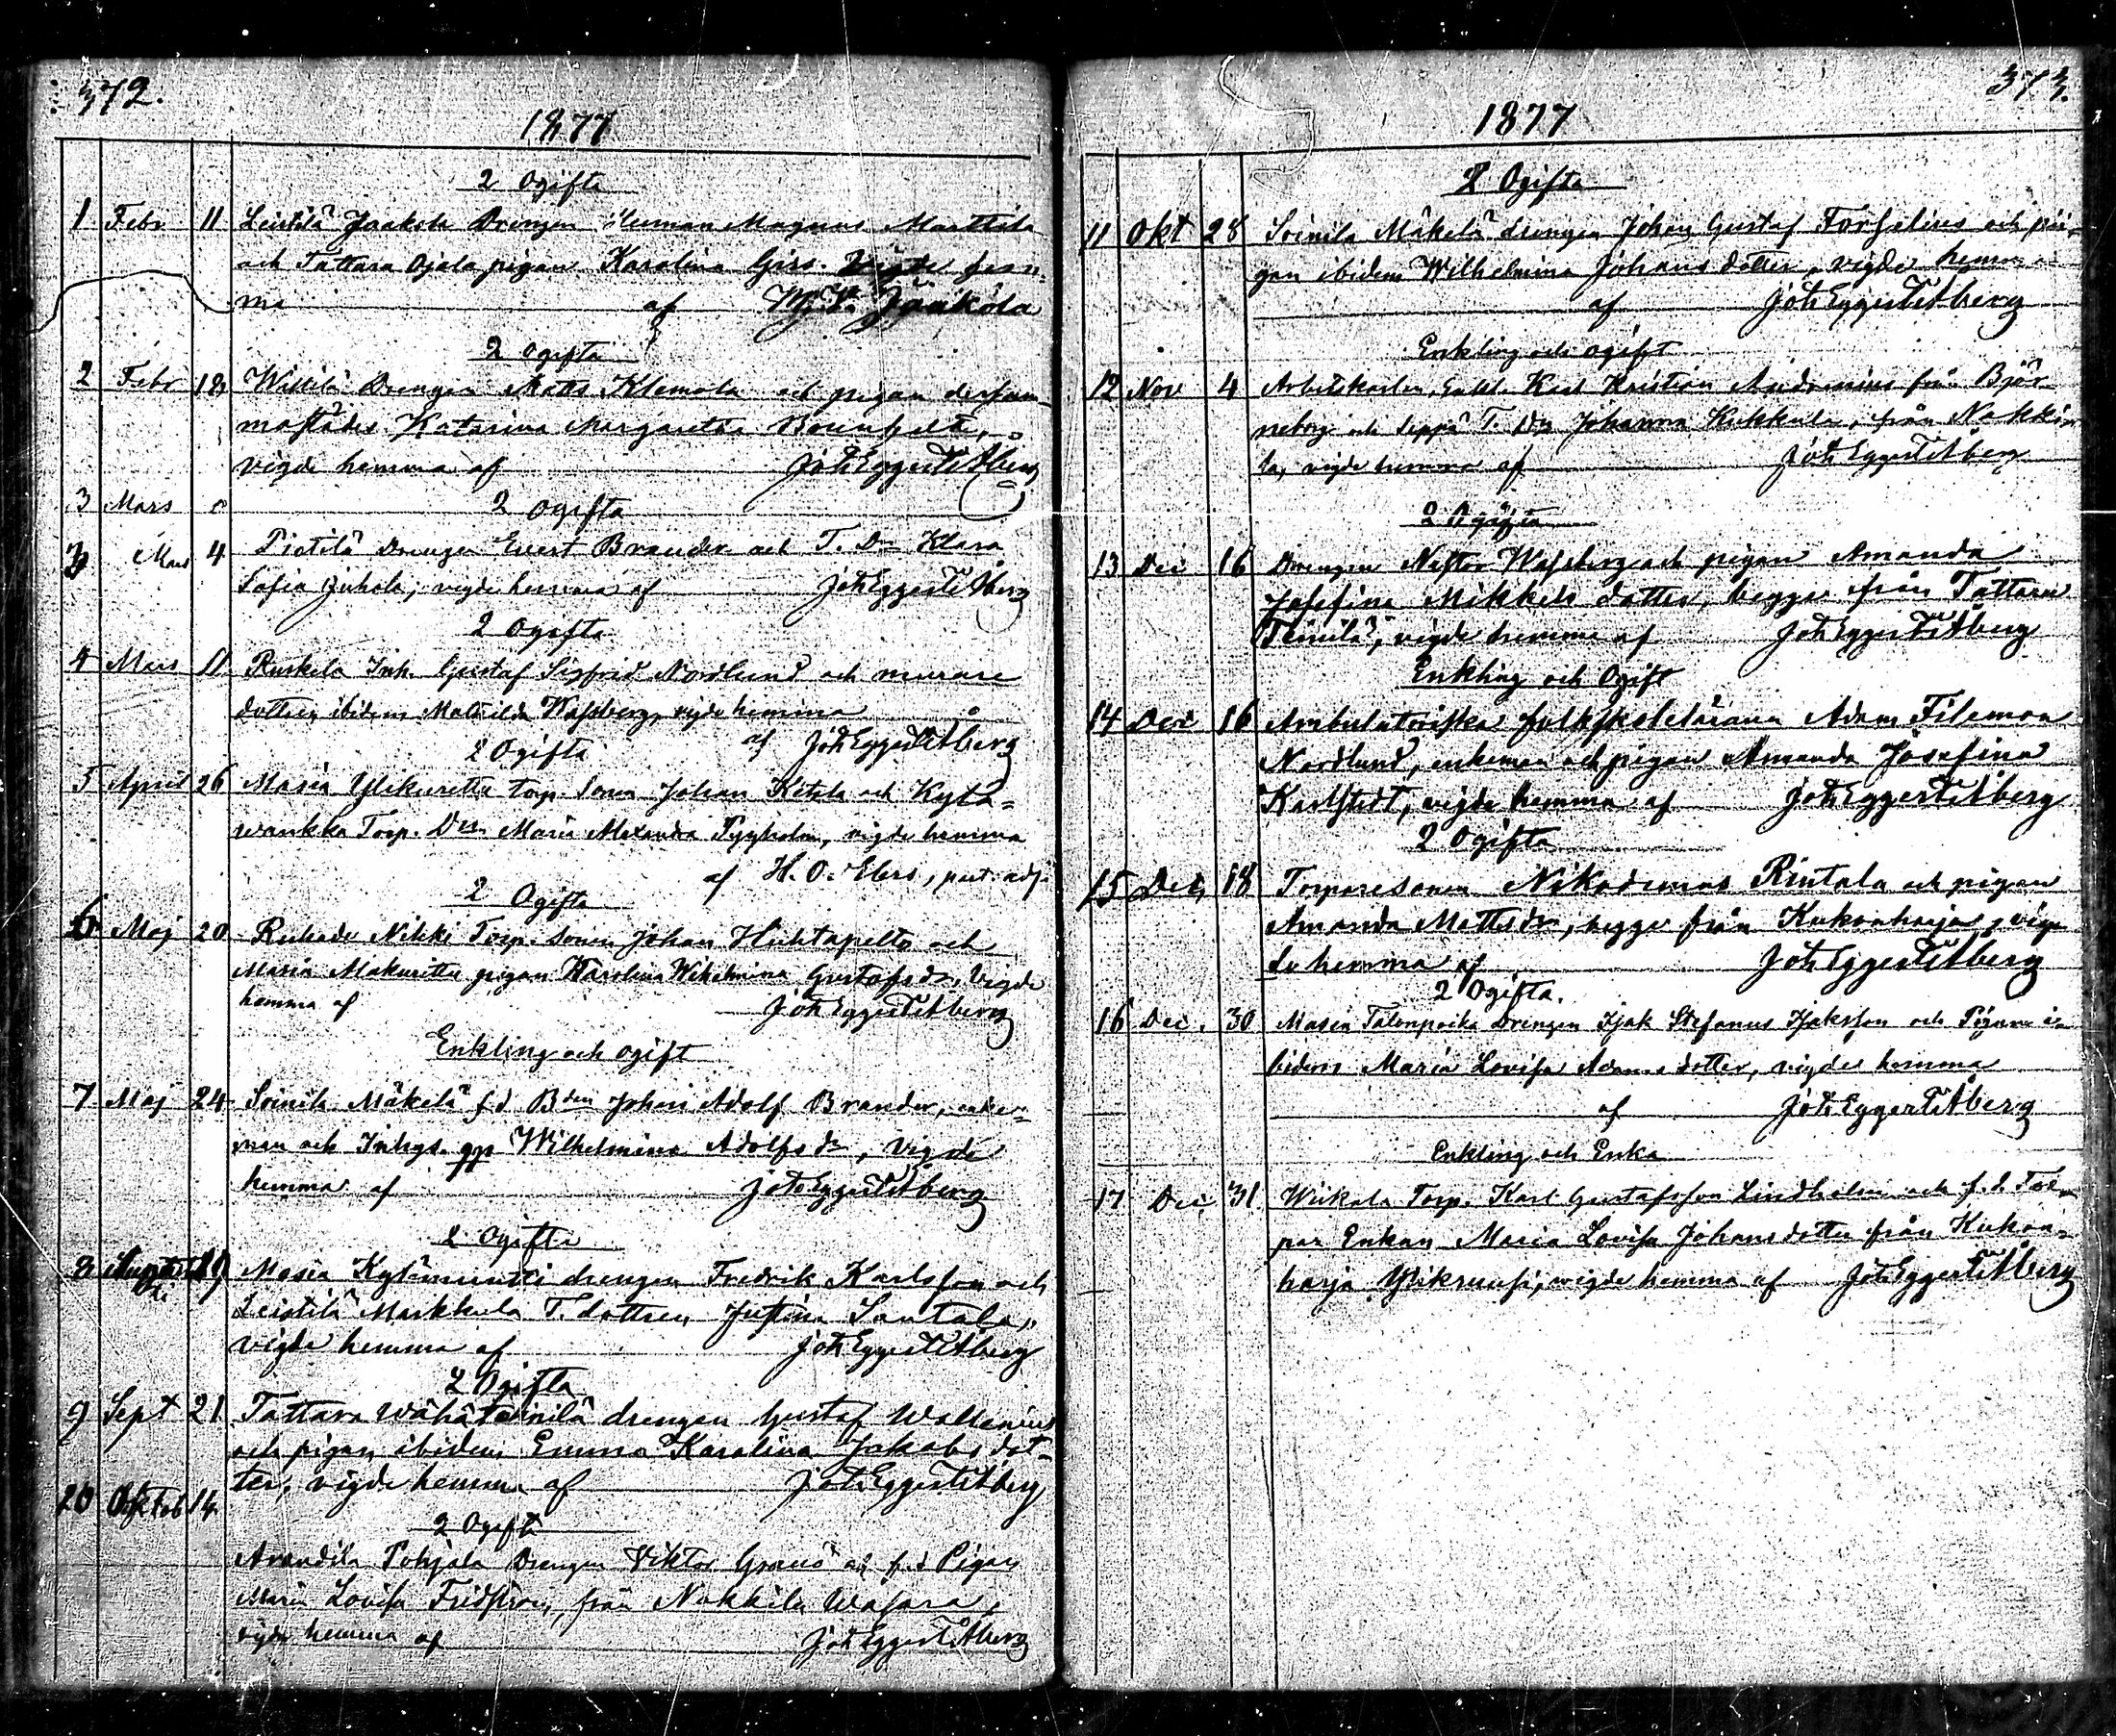 372.
1877
2 Ogifta
1 Febr 11 Leistilä Jaakola Drengen Herman Magnus Marttila
och Tattara Ojala pigan Karolina Grès. Vigde hem-
ma af Jaakola
2 Ogifta
2 Febr 18 Wistilä Drengen Matts Klemola och pigan dersam-
mastädes Katarina Margaretha
vigde hemma af Joh Eggert Titberg
3 Mars
2 Ogifta
3 Mars 4 Pietilä Drengen Evert Brander och T. Dr Klara
Sofia Juhola; vigde hemma af Joh Eggert Titberg
2 Ogifta
4 Mars 11 Ruskela Inh. Gustaf Sigfrid Nordlund och murare
dottren ibidem Mathilda Wassberg, vigde hemma
2 Ogifta af Joh Eggert Titberg
5 April 26 Masia Ylikuretta torp. sonen Johan Ketola och Kylä-
wankka Torp. Drn Maria Alexandra Pyyholm, vigde hemma
af H. O. Elers, past. adj.
2 Ogifta
6 Maj 20 Ruhade Nikki Torp. sonen Johan Huhtapelto och
Masia Makuritta pigan Karolina Wilhelmina Gustafsdr. Vigde
hemma af Joh Eggert Titberg
Enkling och ogift
7 Maj 24 Soinila Mäkelä f.d Bden Johan Adolf Brander, enke-
man och Inhys. Wilhelmina Adolfs dr, vigde
hemma af Joh Eggert Titberg
2 Ogifta
8 Augusti 19 Masia drengen Fredrik Karlsson och
Leistilä Markkula T. dottren Justina Santala,
vigde hemma af Joh Eggert Titberg
2 Ogifta
9 Sept 21 Tattara Wähäteinilä drengen Gustaf Wallenius
och pigan ibidem Emma Karolina Jakobs dot-
ter; vigde hemma af Joh Eggert Titberg
10 Oktob 14
2 Ogifta
Arandila Pohjala Drengen Viktor Granö och f.d Pigan
Maria Lovisa Fridström, från Nakkila Wasara,
vigde hemma af Joh Eggert Titberg
373.
1877
2 Ogifta
11 Okt 28 Soinila Mäkelä drengen Johan Gustaf Forselius och pi-
gan ibidem Wilhelmina Johans dotter, vigde hemma
af Joh Eggert Titberg
Enkling och ogift
12 Nov 4 Arbetskarlen, Enkl. Karl Kristian från Björ-
neborg och Seppä T. Drn Johanna Kukkula, från Nakki-
la, vigde hemma af Joh Eggert Titberg
2 Ogifta
13 Dec 16 Drengen Nestor Wassberg och pigan Amanda
Josefina Mikkels dotter, begge från Tattara
Teinilä, vigde hemma af Joh Eggert Titberg
Enkling och Ogift
14 Dec 16 Ambulatoriska folkskoleläraren Adam Filemon
Nordlund, enkeman och pigan Amanda Josefina
Karlstedt, vigde hemma af Joh Eggert Titberg
2 Ogifta
15 Dec 18 Torparesonen Nikodemus Rintala och pigan
Amanda Mattsdr, begge från Kukonharja, vig-
de hemma af Joh Eggert Titberg
2 Ogifta.
16 Dec. 30 Masia Talonpoika Drengen Isak Stefanus Isaksson och Pigan i-
bidem Maria Lovisa Adams dotter, vigde hemma
af Joh Eggert Titberg
Enkling och Enka
17 Dec. 31 Wiikala Torp. Karl Gustafsson Lindholm och f.d. Tor-
par Enkan Maria Lovisa Johans dotter från Kukon-
harja Ylikruusi, vigde hemma af Joh Eggert Titberg